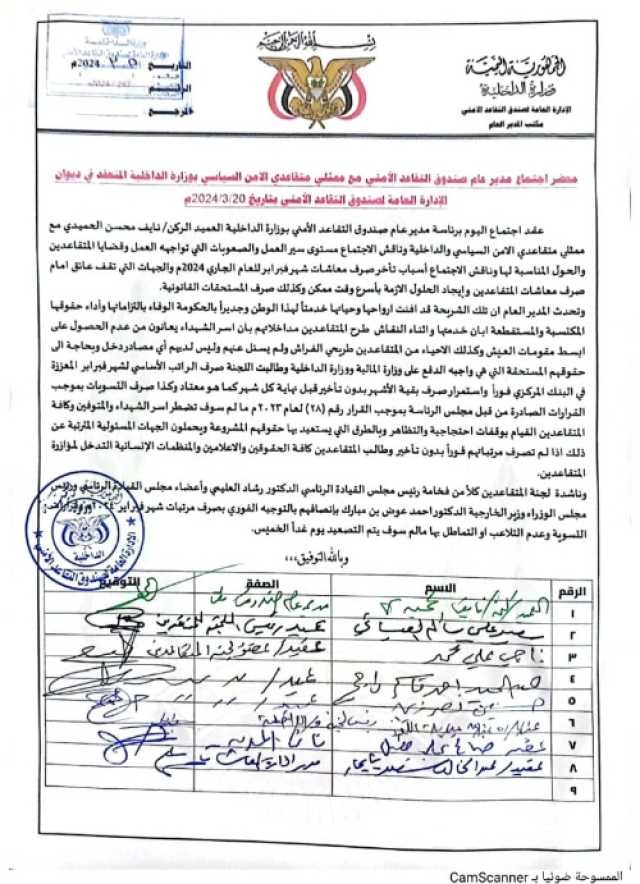 بسم الله الرحمن الرحيم
الجمهورية اليمنية
وزارة الداخلية
الإدارة العامة لصندوق التقاعد الأمني
مكتب المدير العام
التاريخ
2024م
الرقم
المرجع
محضر اجتماع مدير عام صندوق التقاعد الأمني مع ممثلي متقاعدي الامن السياسي بوزارة الداخلية المنعقد في ديوان
الإدارة العامة لصندوق التقاعد الأمني بتاريخ 2024/3/20م
عقد اجتماع اليوم برئاسة مدير عام صندوق التقاعد الأمني بوزارة الداخلية العميد الركن/ نايف محسن الحميدي مع
ممثلي متقاعدي الامن السياسي والداخلية وناقش الاجتماع مستوى سير العمل والصعوبات التي تواجهه العمل وقضايا المتقاعدين
والحول المناسبة لها وناقش الاجتماع أسباب تأخر صرف معاشات شهر فبراير للعام الجاري 2024م والجهات التي تقف عائق امام
صرف معاشات المتقاعدين وإيجاد الحلول الازمة بأسرع وقت ممكن وكذلك صرف المستحقات القانونية.
وتحدث المدير العام ان تلك الشريحة قد افنت ارواحها وحياتها خدمتاً لهذا الوطن وجديراً بالحكومة الوفاء بالتزاماتها وأداء حقوقها
المكتسبة والمستقطعة ابان خدمتها و اثناء النقاش طرح المتقاعدين مداخلاتهم بان اسر الشهداء يعانون من عدم الحصول على
ابسط مقومات العيش وكذلك الاحياء من المتقاعدين طريحي الفراش ولم يسئل عنهم وليس لديهم أي مصادر دخل وبحاجة الى
حقوقهم المستحقة التي هي واجبه الدفع على وزارة المالية ووزارة الداخلية وطالبت اللجنة صرف الراتب الأساسي لشهر فبراير المعززة
في البنك المركزي فوراً واستمرار صرف بقية الأشهر بدون تأخير قبل نهاية كل شهر كما هو معتاد وكذا صرف التسويات بموجب
القرارات الصادرة من قبل مجلس الرئاسة بموجب القرار رقم (٢٨) لعام ٢٠٢٣م ما لم سوف تضطر اسر الشهداء والمتوفين وكافة
المتقاعدين القيام بوقفات احتجاجية والتظاهر وبالطرق التي يستعيد بها حقوقهم المشروعة ويحملون الجهات المسئولية المترتبة عن
ذلك اذا لم تصرف مرتباتهم فوراً بدون تأخير وطالب المتقاعدين كافة الحقوقين والاعلامين والمنظمات الإنسانية التدخل لمؤازرة
المتقاعدين.
وناشدة لجنة المتقاعدين كلاً من فخامة رئيس مجلس القيادة الرئاسي الدكتور رشاد العليمي وأعضاء مجلس القيادة الرئاسي ورئيس
مجلس الوزراء وزير الخارجية الدكتور احمد عوض بن مبارك بإنصافهم بالتوجيه الفوري بصرف مرتبات شهر فبراير
التسوية وعدم التلاعب او التماطل بها مالم سوف يتم التصعيد يوم غداً الخميس.
وبالله التوفيق،،،
الرقم الاسم الصفة التوقيع
١
٢
٣ ناجي علي محمد
٤
٥
٦
٧
٨
٩
الداخلية
الإدارة العامة لصندوق التقاعد الأمني
الممسوحة ضوئيا بـ CamScanner